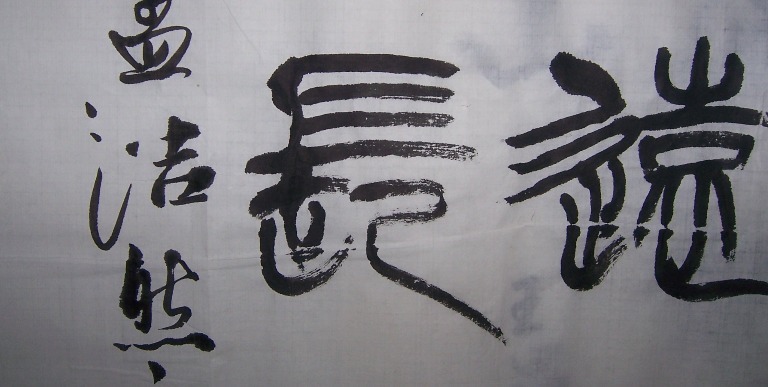 遠長
孟浩然